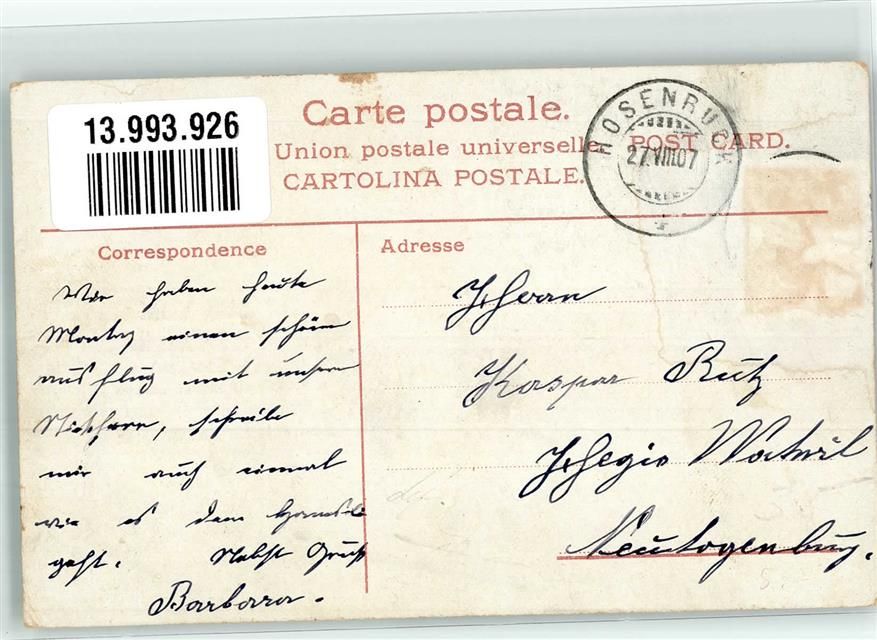 13.993.926
Carte postale.
Union postale universelle POST CARD.
CARTOLINA POSTALE.
HOSENRUCK
27.VIII.07
Correspondence
Adresse
Wir haben heute
Montag einen schönen
ausflug mit unsern
schreibe
mir auch einmal
wie es dem Hansli
geht. Nebst Gruss
Barbara.
Herrn
Kaspar Rutz
Watwil
Neutogenburg.